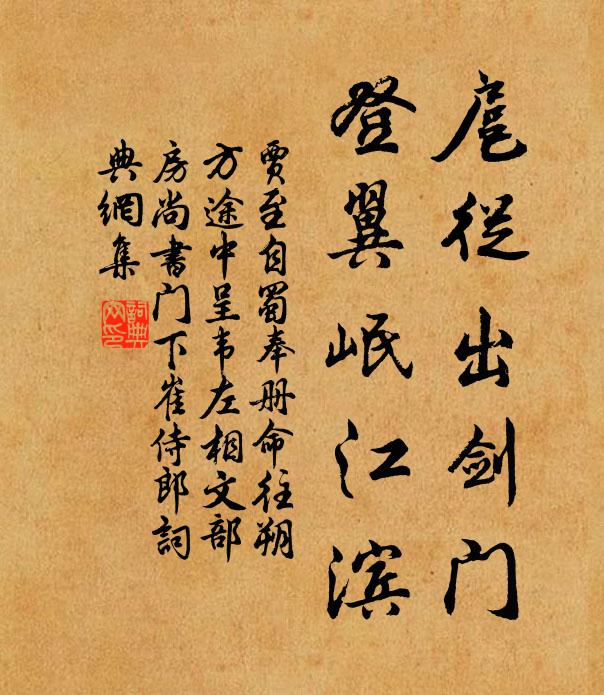 扈從出剑门
登翼岷江滨
贾至自蜀奉册命往朔
方途中呈韦左相文部
房尚書门下崔侍郎詞
典網集
詞典
网印